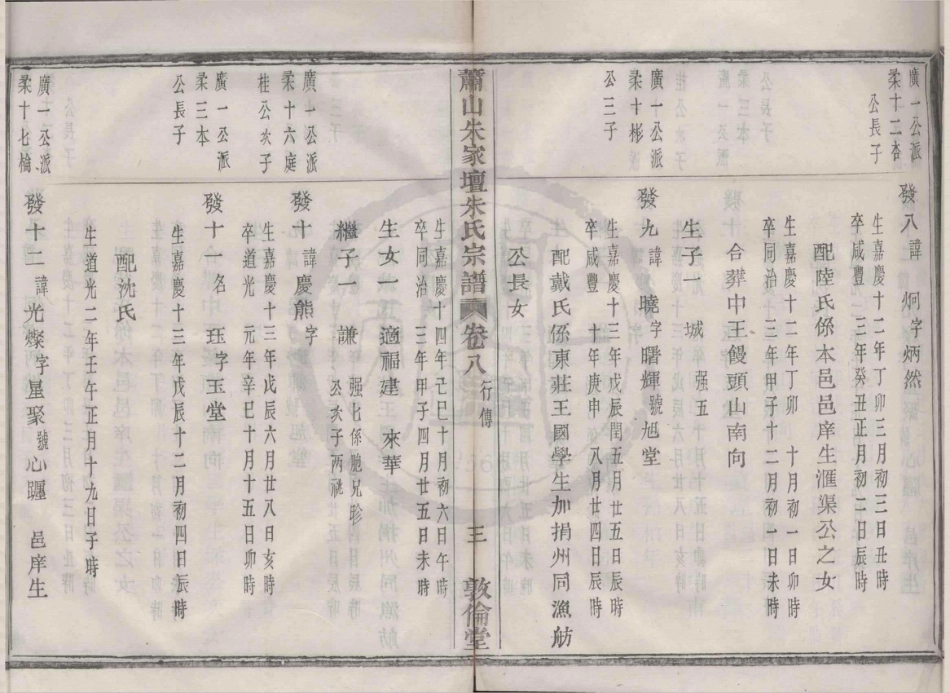 廣一公派
柔十二杏
公長子
發八諱 炯字炳然
生嘉慶十二年丁卯三月初三日丑時
卒咸豐 三年癸丑正月初二日卯時
配陸氏係本邑邑庠生滙渠公之女
生嘉慶十二年丁卯 十月初一日卯時
卒同治 三年甲子十二月初四日未時
合葬中王饅頭山南向
生子一 城 强五
廣一公派
柔十彬
公三子
發九諱 曉字曙輝號旭堂
生嘉慶十三年戊辰閏五月廿五日辰時
卒咸豐 十年庚申 八月廿四日辰時
配戴氏係東莊王國學生加捐州同漁舫
公長女
蕭山朱家壇朱氏宗譜 卷八 行傳 三 敦倫堂
生嘉慶十四年己巳十月初六日午時
卒同治 三年甲子四月廿五日未時
生女一 適福建 來華
繼子一 謙 强七係胞兄
公次子兩祧
廣一公派
柔十六庭
桂公次子
發十諱慶熊字
生嘉慶十三年戊辰六月廿八日亥時
卒道光 元年辛巳十月十五日卯時
廣一公派
柔三本
公長子
發十一名 珏字玉堂
生嘉慶十三年戊辰十二月初四日辰時
配沈氏
生道光二年壬午正月十九日子時
廣一公派
柔十七楠
發十二諱光燦字星聚號心躔 邑庠生